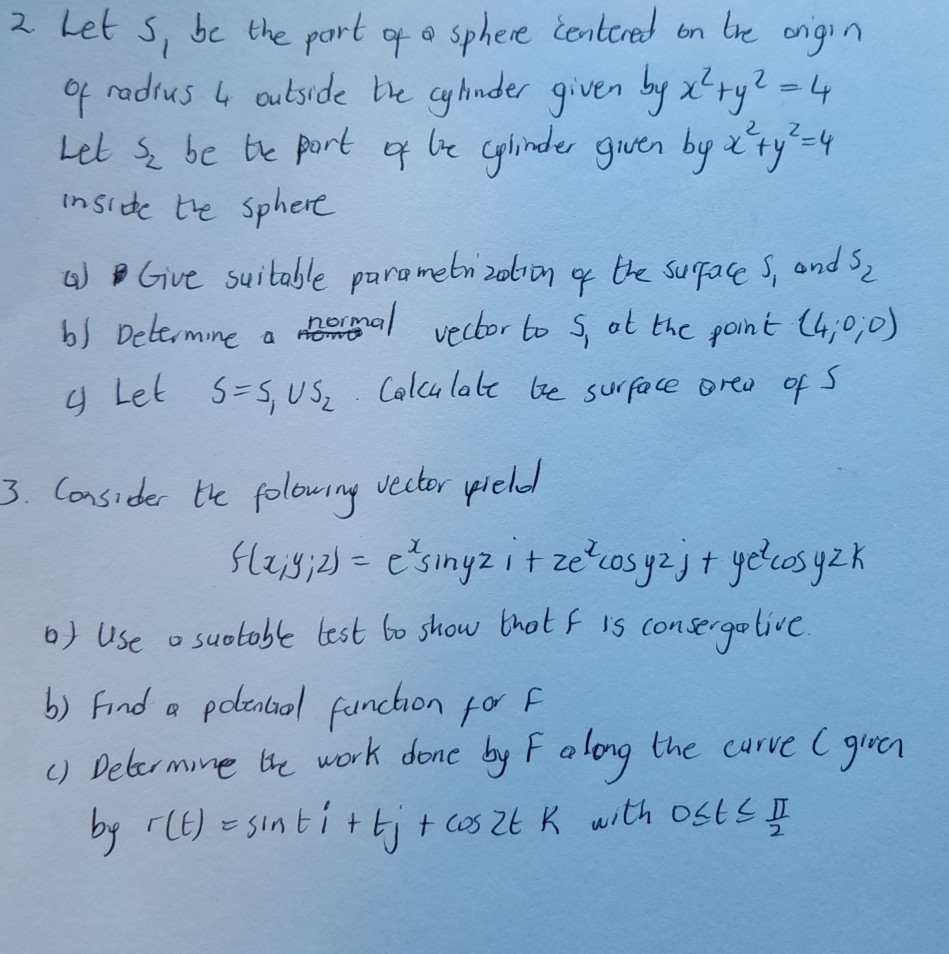 2. Let S₁ be the part of a sphere centered on the origin
of radius 4 outside the cylinder given by x²+y² = 4
Let S₂ be the part of the cylinder given by x²+y²=4
inside the sphere
a) Give suitable parametrization of the surface S₁ and S₂
b) Determine a normal vector to S₁ at the point (4;0;0)
c) Let S=S₁US₂. Calculate the surface area of S
3. Consider the folowing vector field
f(x;y;z) = eˣsinyz i + zeˣcosyz j + yeˣcosyz k
a) Use a suatable test to show that F is consergative.
b) Find a potential function for F
c) Determine the work done by F along the curve C given
by r(t) = sint i + tj + cos 2t K with 0≤t≤ π/2